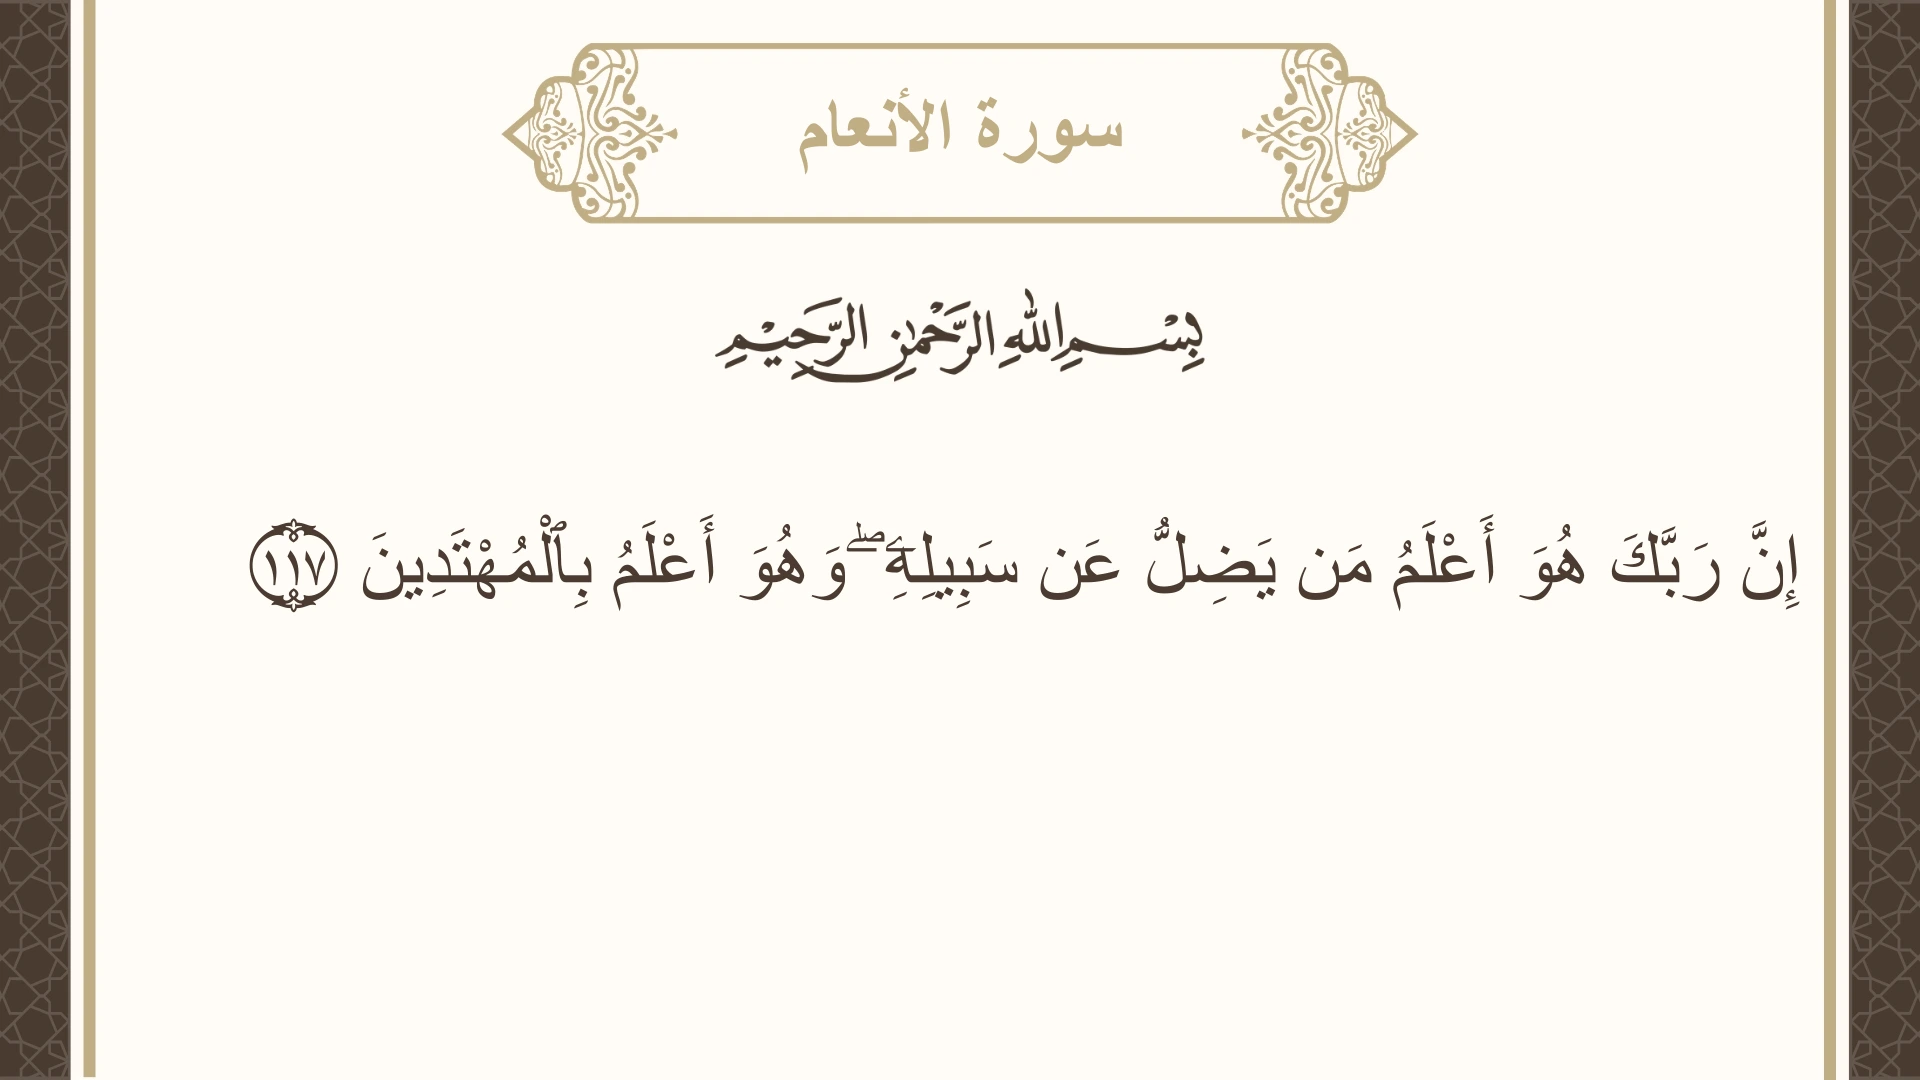 سورة الأنعام
بِسْمِ اللهِ الرَّحْمٰنِ الرَّحِيْمِ
إِنَّ رَبَّكَ هُوَ أَعْلَمُ مَن يَضِلُّ عَن سَبِيلِهِۦۖ وَهُوَ أَعْلَمُ بِٱلْمُهْتَدِينَ ١١٧